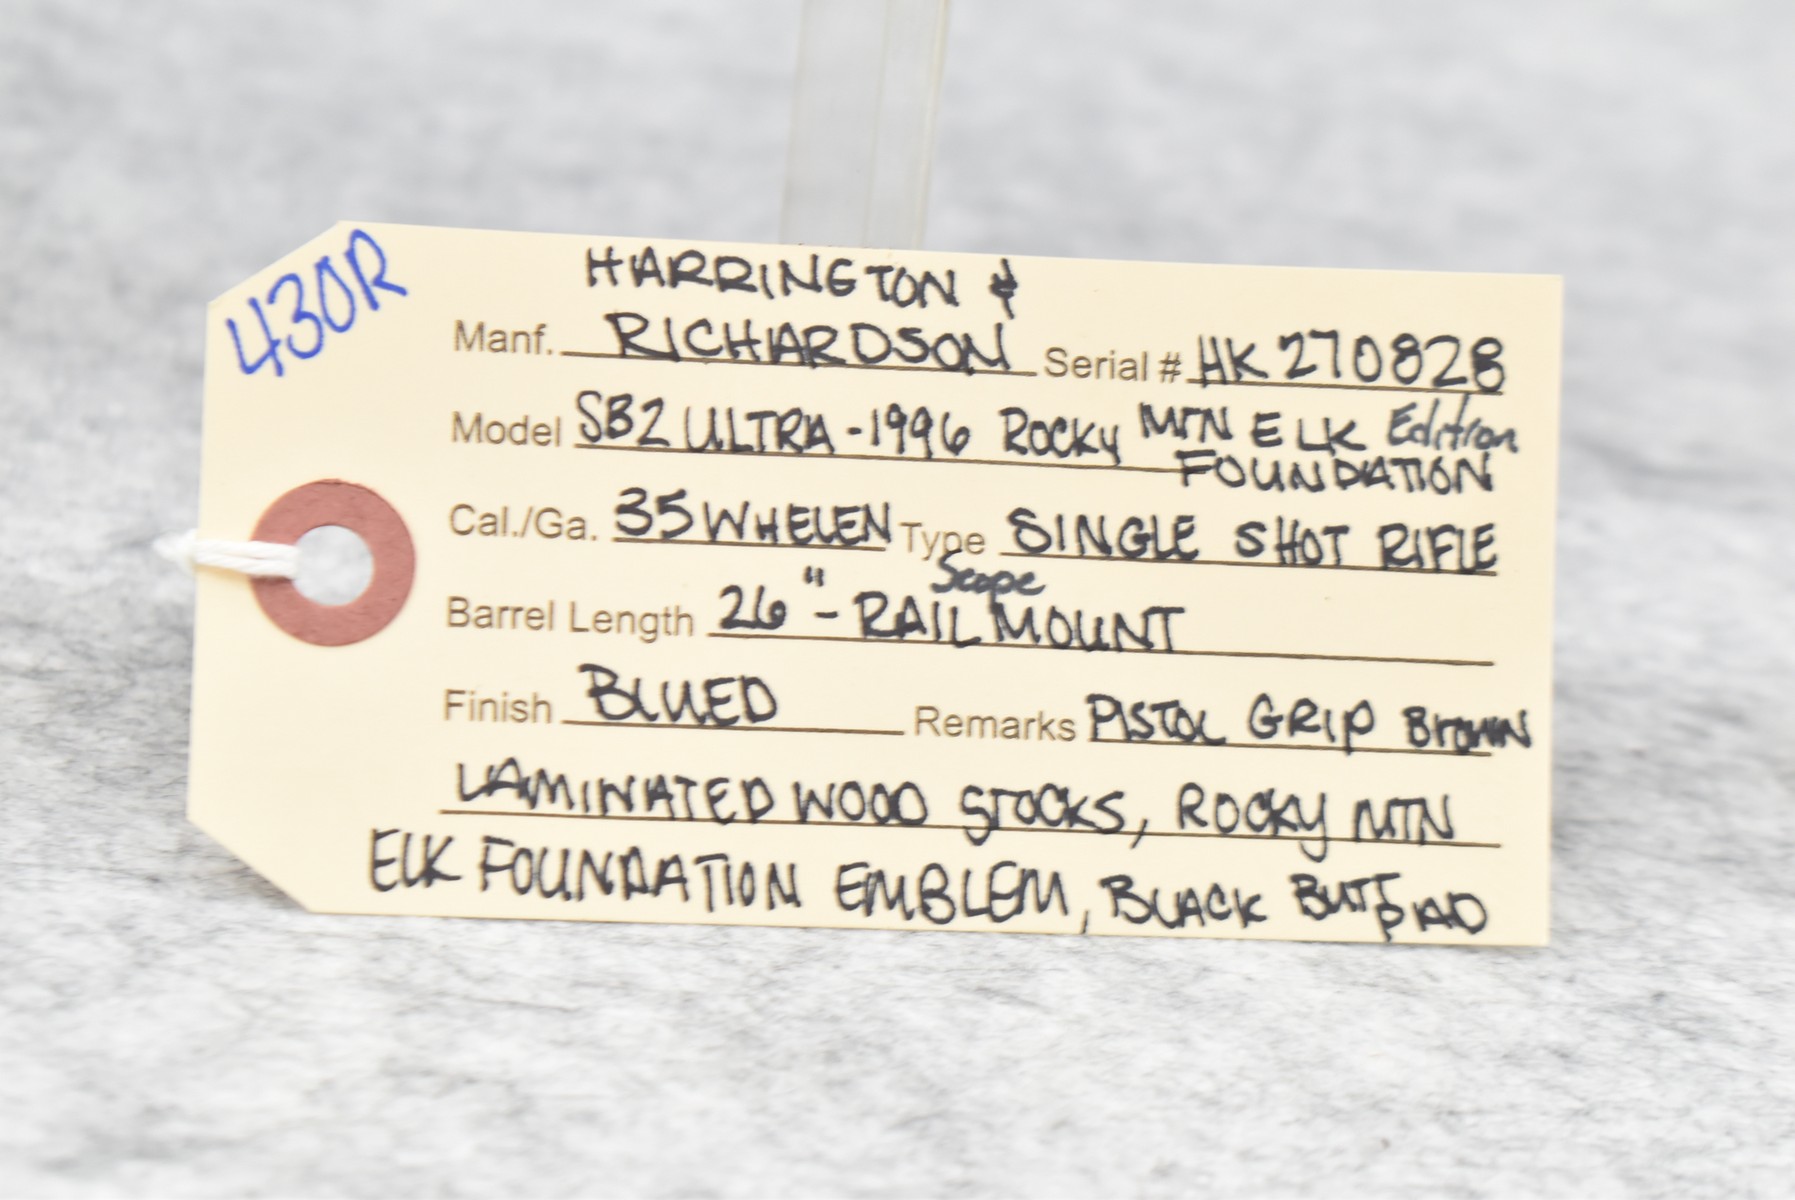 430R
HARRINGTON &
Manf. RICHARDSON Serial # HK270828
Model SB2 ULTRA - 1996 ROCKY MTN ELK Edition
FOUNDATION
Cal./Ga. 35 WHELEN Type SINGLE SHOT RIFLE
Scope
Barrel Length 26" - RAIL MOUNT
Finish BLUED Remarks PISTOL GRIP BROWN
LAMINATED WOOD STOCKS, ROCKY MTN
ELK FOUNDATION EMBLEM, BLACK BUTT PAD